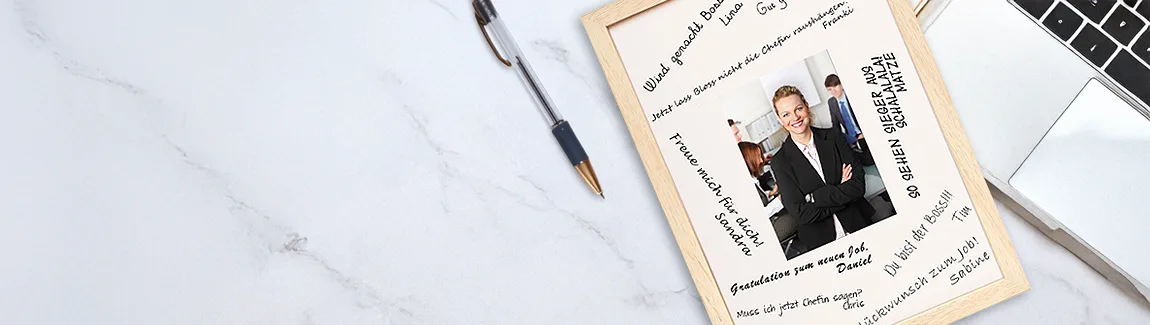 Wird gemacht Boss
Lina
Gut g
Jetzt lass Bloss nicht die Chefin raushängen.
Franki
SO SEHEN SIEGER AUS
SCHALALALA!
MATZE
Freue mich für dich!
Sandra
Du bist der Boss!!!
Tim
Gratulation zum neuen Job,
Daniel
Muss ich jetzt Chefin sagen?
Chris
lückwunsch zum Job!
Sabine